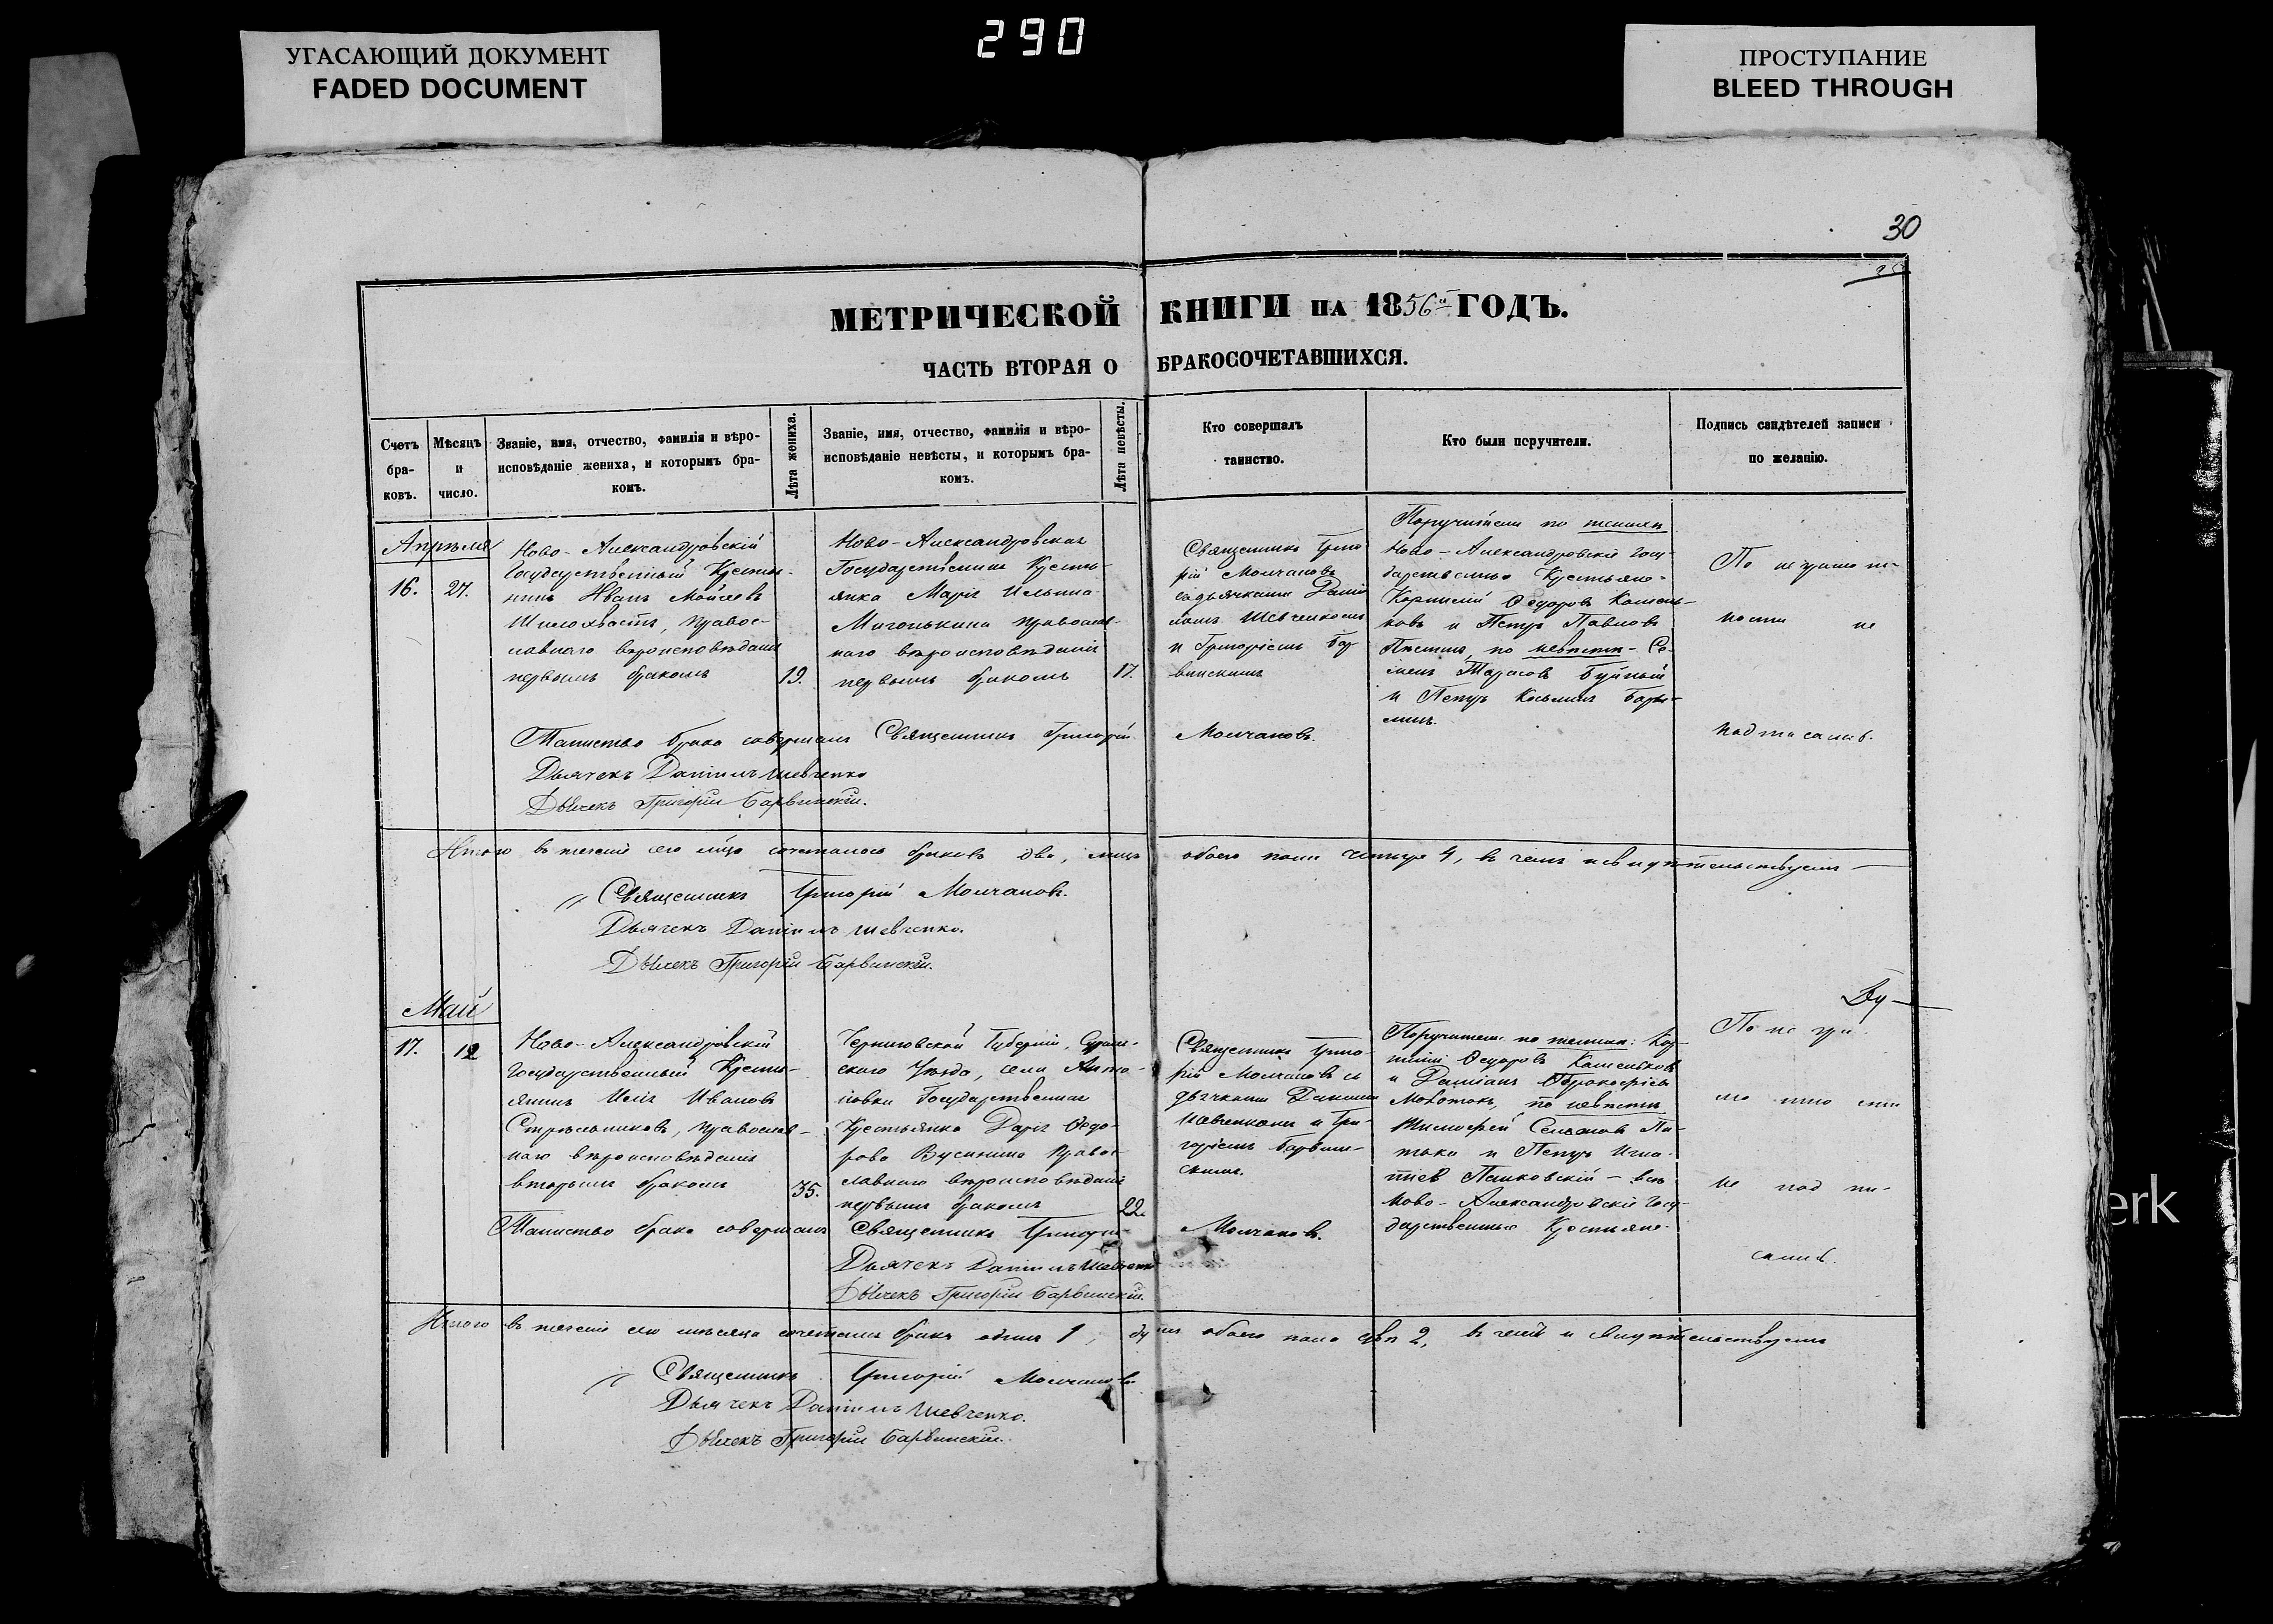 УГАСАЮЩИЙ ДОКУМЕНТ
FADED DOCUMENT
290
ПРОСТУПАНИЕ
BLEED THROUGH
30
МЕТРИЧЕСКОЙ КНИГИ НА 1856й ГОДЪ.
ЧАСТЬ ВТОРАЯ О БРАКОСОЧЕТАВШИХСЯ.
Счетъ
бра-
ковъ.
Мѣсяцъ
и
число.
Званіе, имя, отчество, фамилія и вѣро-
исповѣданіе жениха, и которымъ бра-
комъ.
Лѣта жениха.
Званіе, имя, отчество, фамилія и вѣро-
исповѣданіе невѣсты, и которымъ бра-
комъ.
Лѣта невѣсты.
Кто совершалъ
таинство.
Кто были поручители.
Подпись свидѣтелей записи
по желанію.
Апрѣля
16.
27.
Ново-Александровскій
Государственный Крестья-
нинъ Иванъ Мойсеевъ
Шилохвостъ, правос-
лавнаго вѣроисповѣданія
первымъ бракомъ
19.
Ново-Александровская
Государственная Кресть-
янка Марія Ильина
православ-
наго вѣроисповѣданія
первымъ бракомъ
17.
Священникъ Григо-
рій Молчановъ
съ дьячками Дани-
ломъ Шевченкомъ
и Григоріемъ Бар-
винскимъ
Поручители по женихѣ
Ново-Александровскіе Госу-
дарственные Крестьяне
Корнилій Ѳедоровъ Камень-
ковъ и Петръ Павловъ
по невѣстѣ - Се-
менъ Тарасовъ Буйный
и Петръ Косьминъ
По неграмот-
ности не
подписались.
Таинство брака совершалъ Священникъ Григорій Молчановъ.
Дьячекъ Даниилъ Шевченко
Дьячекъ Григорій Барвинскій.
Итого въ теченіе сего м̃ца сочеталось браковъ два, лицъ обоего пола четыре 4, въ чемъ и свидѣтельствуемъ
Священникъ Григорій Молчановъ.
Дьячекъ Даниилъ Шевченко.
Дьячекъ Григорій Барвинскій.
Май
17.
12
Ново-Александровскій
Государственный Кресть-
янинъ Илія Ивановъ
Стрѣльниковъ, православ-
наго вѣроисповѣданія
вторымъ бракомъ
35.
Черниговской Губерніи, Сураж-
скаго Уѣзда, села Анто-
новки Государственная
Крестьянка Дарія Ѳедо-
рова правос-
лавнаго вѣроисповѣданія
первымъ бракомъ
22.
Священникъ Григо-
рій Молчановъ съ
дьячками Даниломъ
Шевченкомъ и Гри-
горіемъ Барвин-
скимъ.
Поручители по женихѣ: Кор-
нилій Ѳедоровъ Каменьковъ
и Даміанъ
Молотокъ, по невѣстѣ
Тимофей
и Петръ Игна-
тіевъ Панковскій - всѣ
Ново-Александровскіе Госу-
дарственные Крестьяне.
По негра-
мотности
не подпи-
сались.
Таинство брака совершалъ Священникъ Григорій Молчановъ.
Дьячекъ Даниилъ Шевченко
Дьячекъ Григорій Барвинскій.
Итого въ теченіе сего мѣсяца сочетался бракъ одинъ 1, душъ обоего пола двѣ 2, въ чемъ и свидѣтельствуемъ
Священникъ Григорій Молчановъ
Дьячекъ Даниилъ Шевченко.
Дьячекъ Григорій Барвинскій.
erk